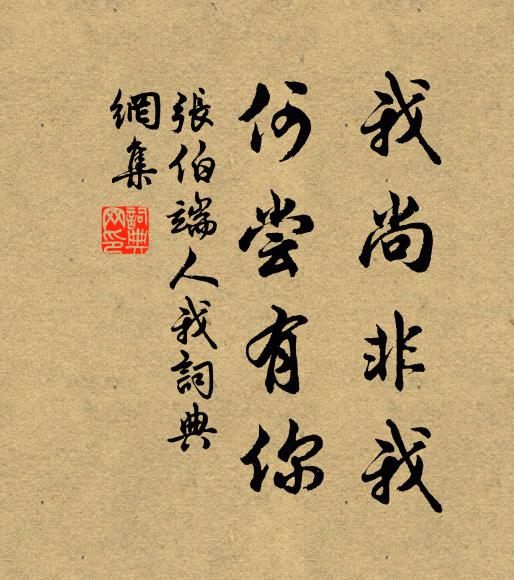 我尚非我
何尝有你
張伯端人我詞典
網集
詞典
网印